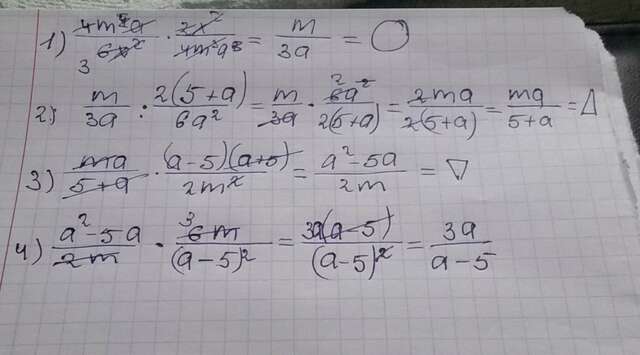 1) 4m³a / 6x² · 2x² / 4m²a² = m / 3a = ○
3
2) m / 3a : 2(5+a) / 6a² = m / 3a · 6a² / 2(5+a) = 2ma / 2(5+a) = ma / 5+a = Δ
3) ma / 5+a · (a-5)(a+5) / 2m² = a²-5a / 2m = ▽
4) a²-5a / 2m · 6m / (a-5)² = 3a(a-5) / (a-5)² = 3a / a-5